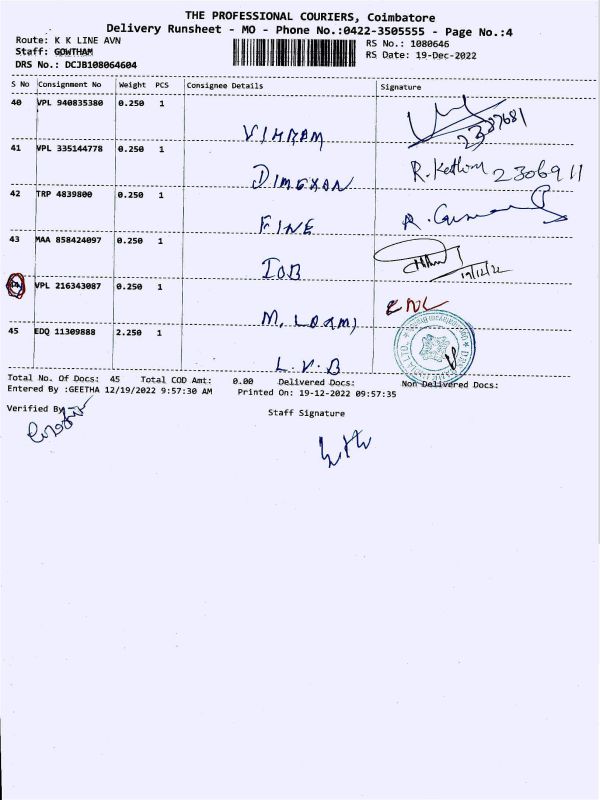 THE PROFESSIONAL COURIERS, Coimbatore
Delivery Runsheet - MO - Phone No.:0422-3505555 - Page No.:4
Route: K K LINE AVN
RS No.: 1080646
Staff: GOWTHAM
RS Date: 19-Dec-2022
DRS No.: DCJB108064604
S No Consignment No Weight PCS Consignee Details Signature
40 VPL 940835380 0.250 1 VIKRAM
41 VPL 335144778 0.250 1 DIMEXON R. 2306911
42 TRP 4839800 0.250 1 FINE R.
43 MAA 858424097 0.250 1 IOB 19/12/22
44 VPL 216343087 0.250 1 M.
45 EDQ 11309888 2.250 1 L.V.B
Total No. Of Docs: 45 Total COD Amt: 0.00 Delivered Docs: Non Delivered Docs:
Entered By :GEETHA 12/19/2022 9:57:30 AM Printed On: 19-12-2022 09:57:35
Verified By
Staff Signature